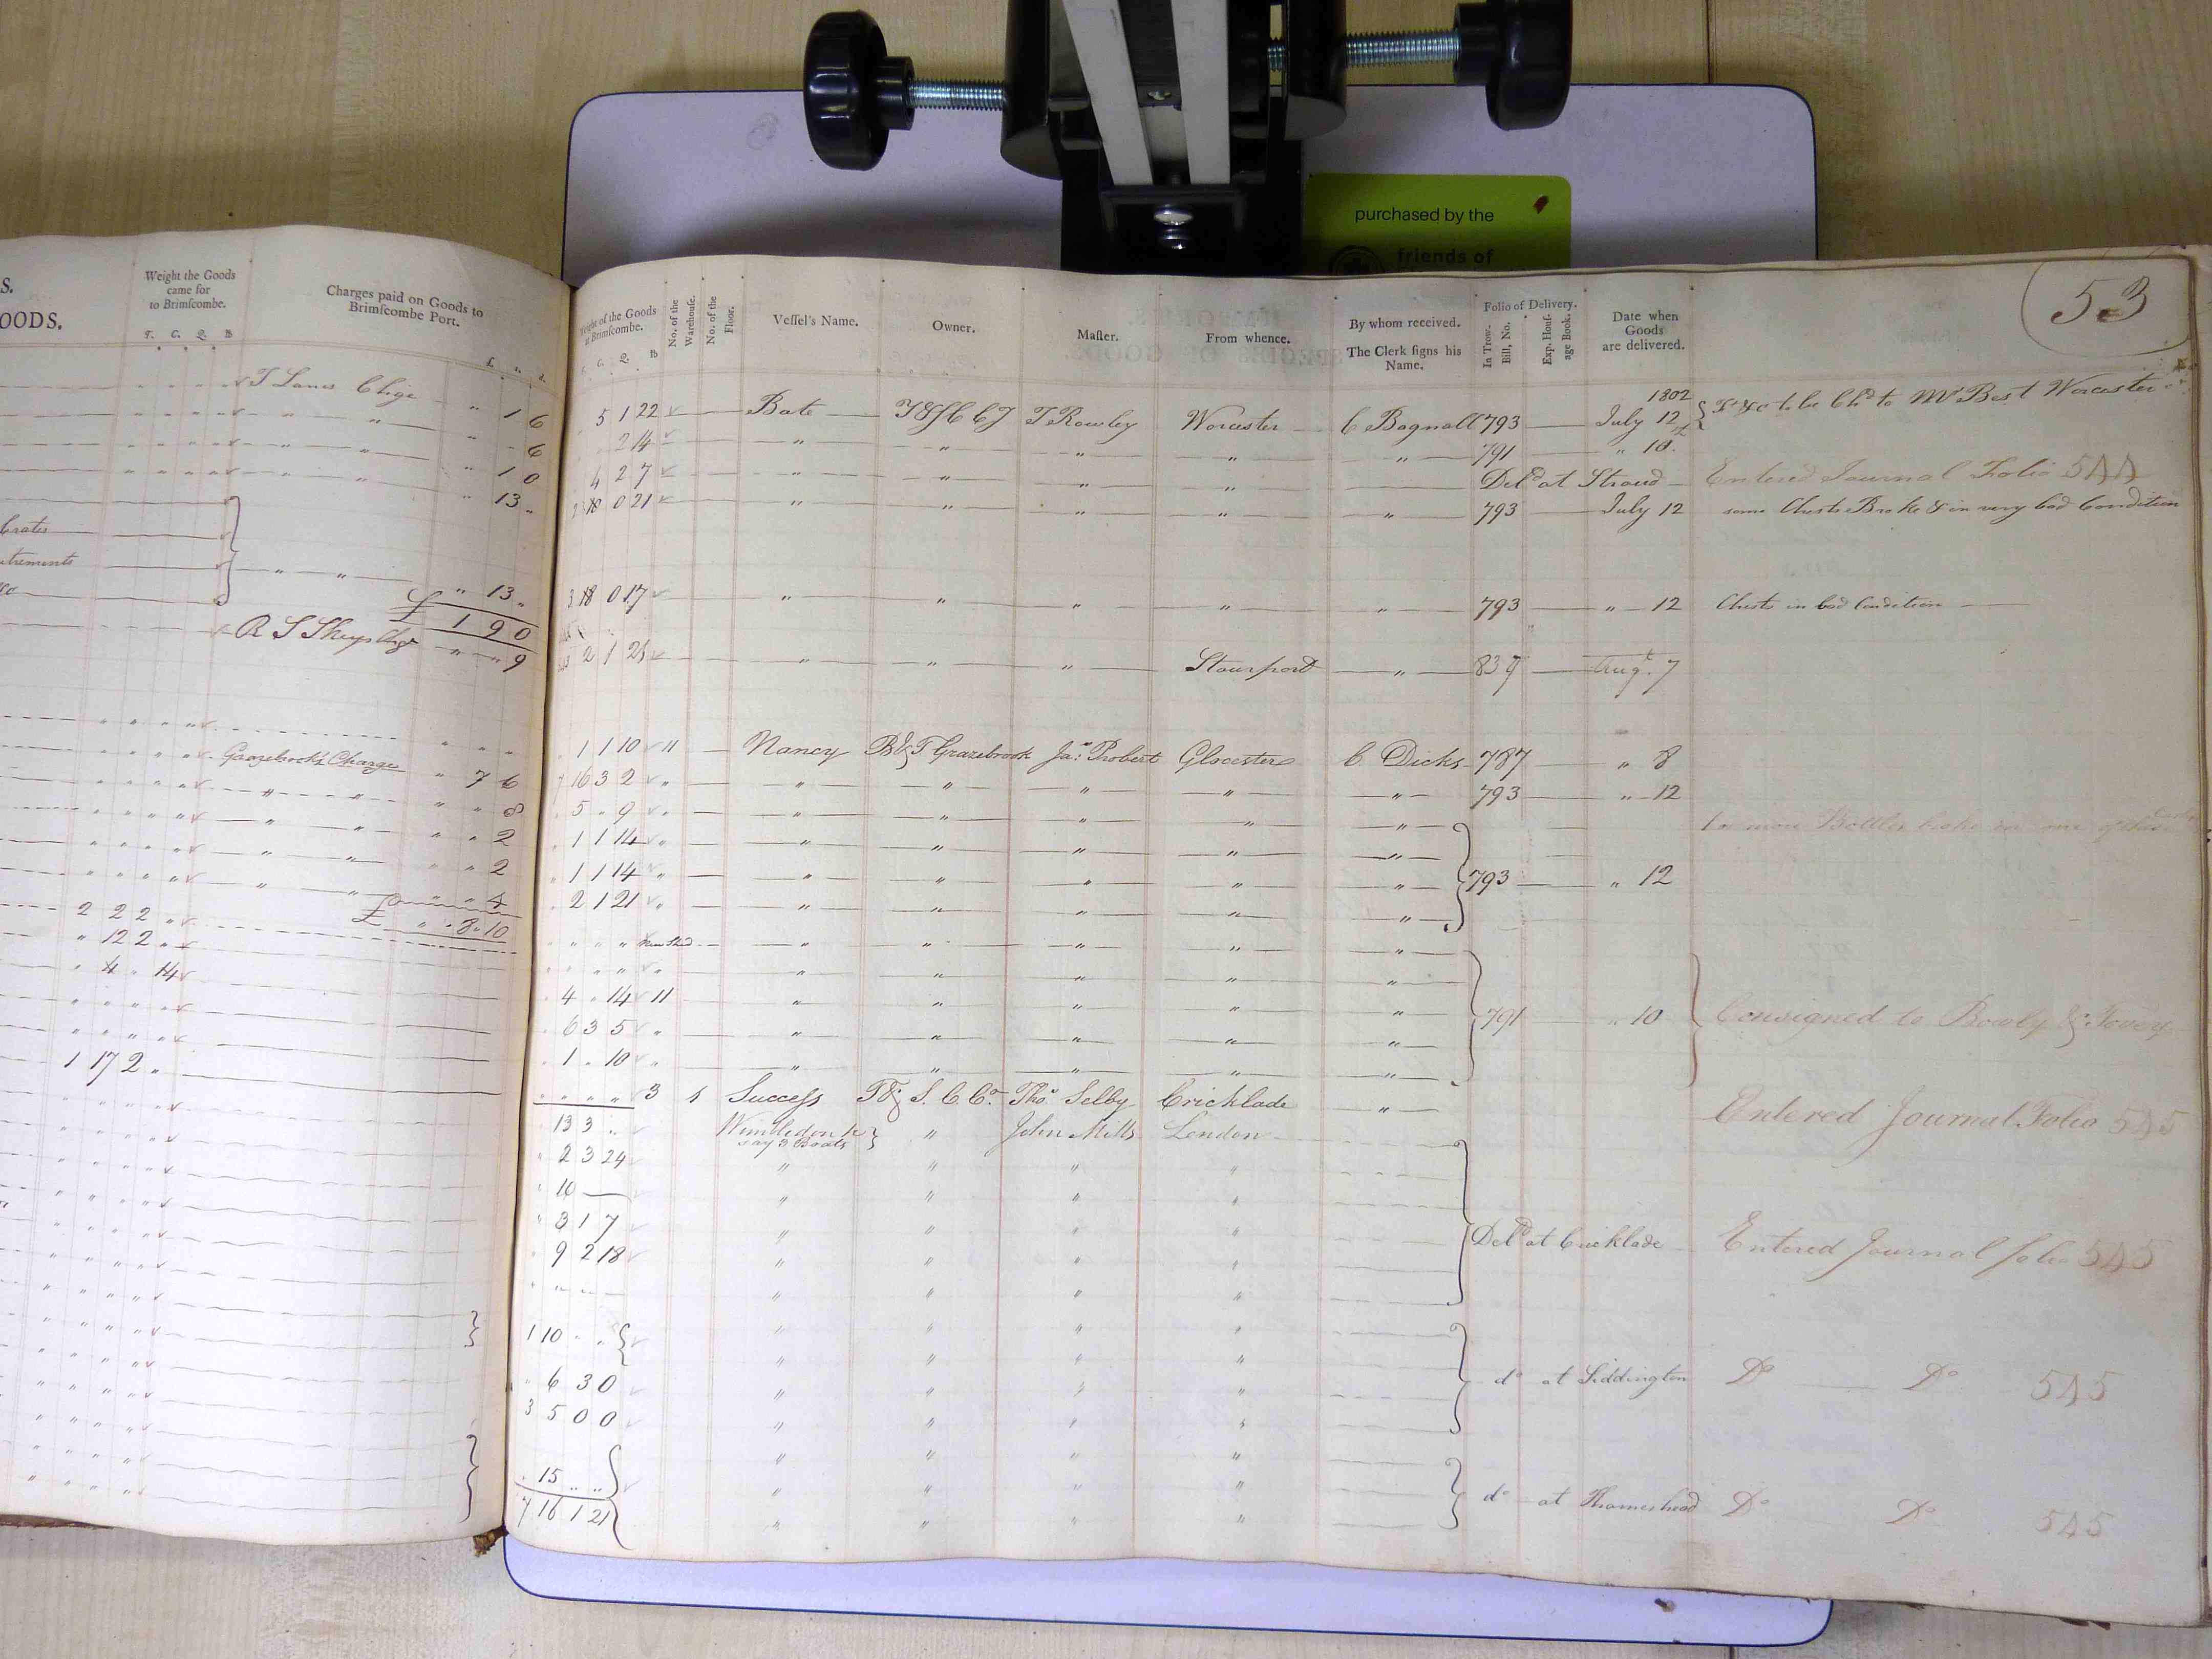 purchased by the
friends of
S.
OODS.
Weight the Goods
came for
to Brimſcombe.
T. C. Q. lb
Charges paid on Goods to
Brimſcombe Port.
£. s. d.
T Lanes Chge " 1 6
" " - 6
" " 1 0
" " 13 "
Crates
" " " 13 "
£ 1 9 0
R S Skeys Chge " " 9
Grazebrooks Charge " 7 6
" " " " 8
" " " " 2
" " " " 2
" " " " 4
£ " 8 " 10
2 2 2 "
" 12 2 "
" 4 " 14
1 17 2 "
53
Weight of the Goods
at Brimſcombe.
C. Q. lb
No. of the
Warehouſe.
No. of the
Floor.
Veſſel's Name.
Owner.
Maſter.
From whence.
By whom received.
The Clerk ſigns his
Name.
Folio of Delivery.
In Trow-
Bill, No.
Exp. Houſ-
age Book.
Date when
Goods
are delivered.
1802
5 1 22 Bate T&SCCo T Rowley Worcester C Bagnall 793 July 12 to be Chd to Mr Best Worcester
2 14 " " " " " 791 " 10
4 2 7 " " " " Deld at Stroud Entered Journal Folio 544
18 0 21 " " " " " 793 July 12 some Chests Broke & in very bad Condition
3 18 0 17 " " " " " 793 " 12 Chests in bad Condition
2 1 21 " " " Stourport " 839 Augt. 7
1 1 10 11 Nancy B & T Grazebrook Jas. Probert Glocester C Dicks 787 " 8
7 16 3 2 " " " " " " 793 " 12
5 " 9 " " " " " "
1 1 14 " " " " " "
1 1 14 " " " " " " 793 " 12
2 1 21 " " " " " "
" " " " New Shed " " " " "
" " " " " " " " " "
4 " 14 11 " " " " "
6 3 5 " " " " " " 791 " 10 Consigned to Bowly & Tovey
1 " 10 " " " " " "
" " " " 3 1 Success T & S. C. Co. Thos. Selby Cricklade " Entered Journal Folio 545
13 3 " Wimbledon &
say 3 Boats " John Mills London
2 3 24 " " " "
10 " " " "
3 1 7 " " " "
9 2 18 " " " " Deld at Cricklade Entered Journal folio 545
" " " "
1 10 " " " " " "
6 3 0 " " " " do at Siddington Do Do 545
3 5 0 0 " " " "
15 " " " " " "
7 16 1 21 " " " " do at Thameshead Do Do 545